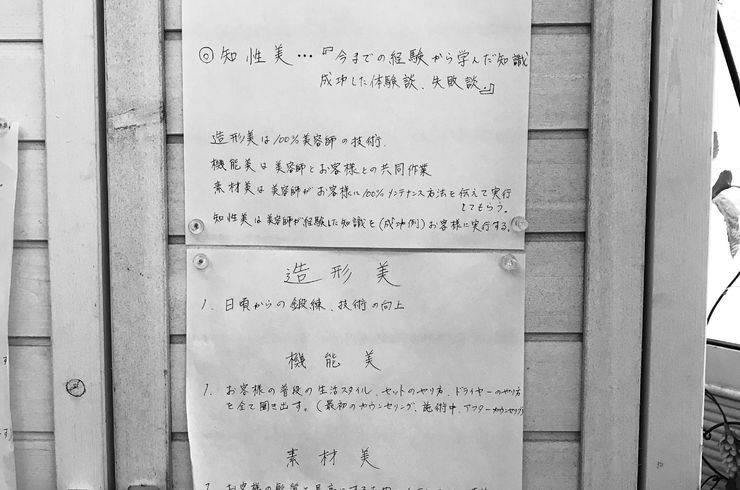 ◎知性美…『今までの経験から学んだ知識
成功した体験談、失敗談。』
造形美は100%美容師の技術.
機能美は美容師とお客様との共同作業
素材美は美容師がお客様に100%メンテナンス方法を伝えて実行
してもらう。
知性美は美容師が経験した知識を(成功例)お客様に実行する。
造形美
1. 日頃からの鍛練、技術の向上
機能美
1. お客様の普段の生活スタイル、セットのやり方、ドライヤーのやり方
を全て聞き出す。(最初のカウンセリング、施術中、アフターカウンセリング)
素材美
1. お客様の髪質を最高にする為